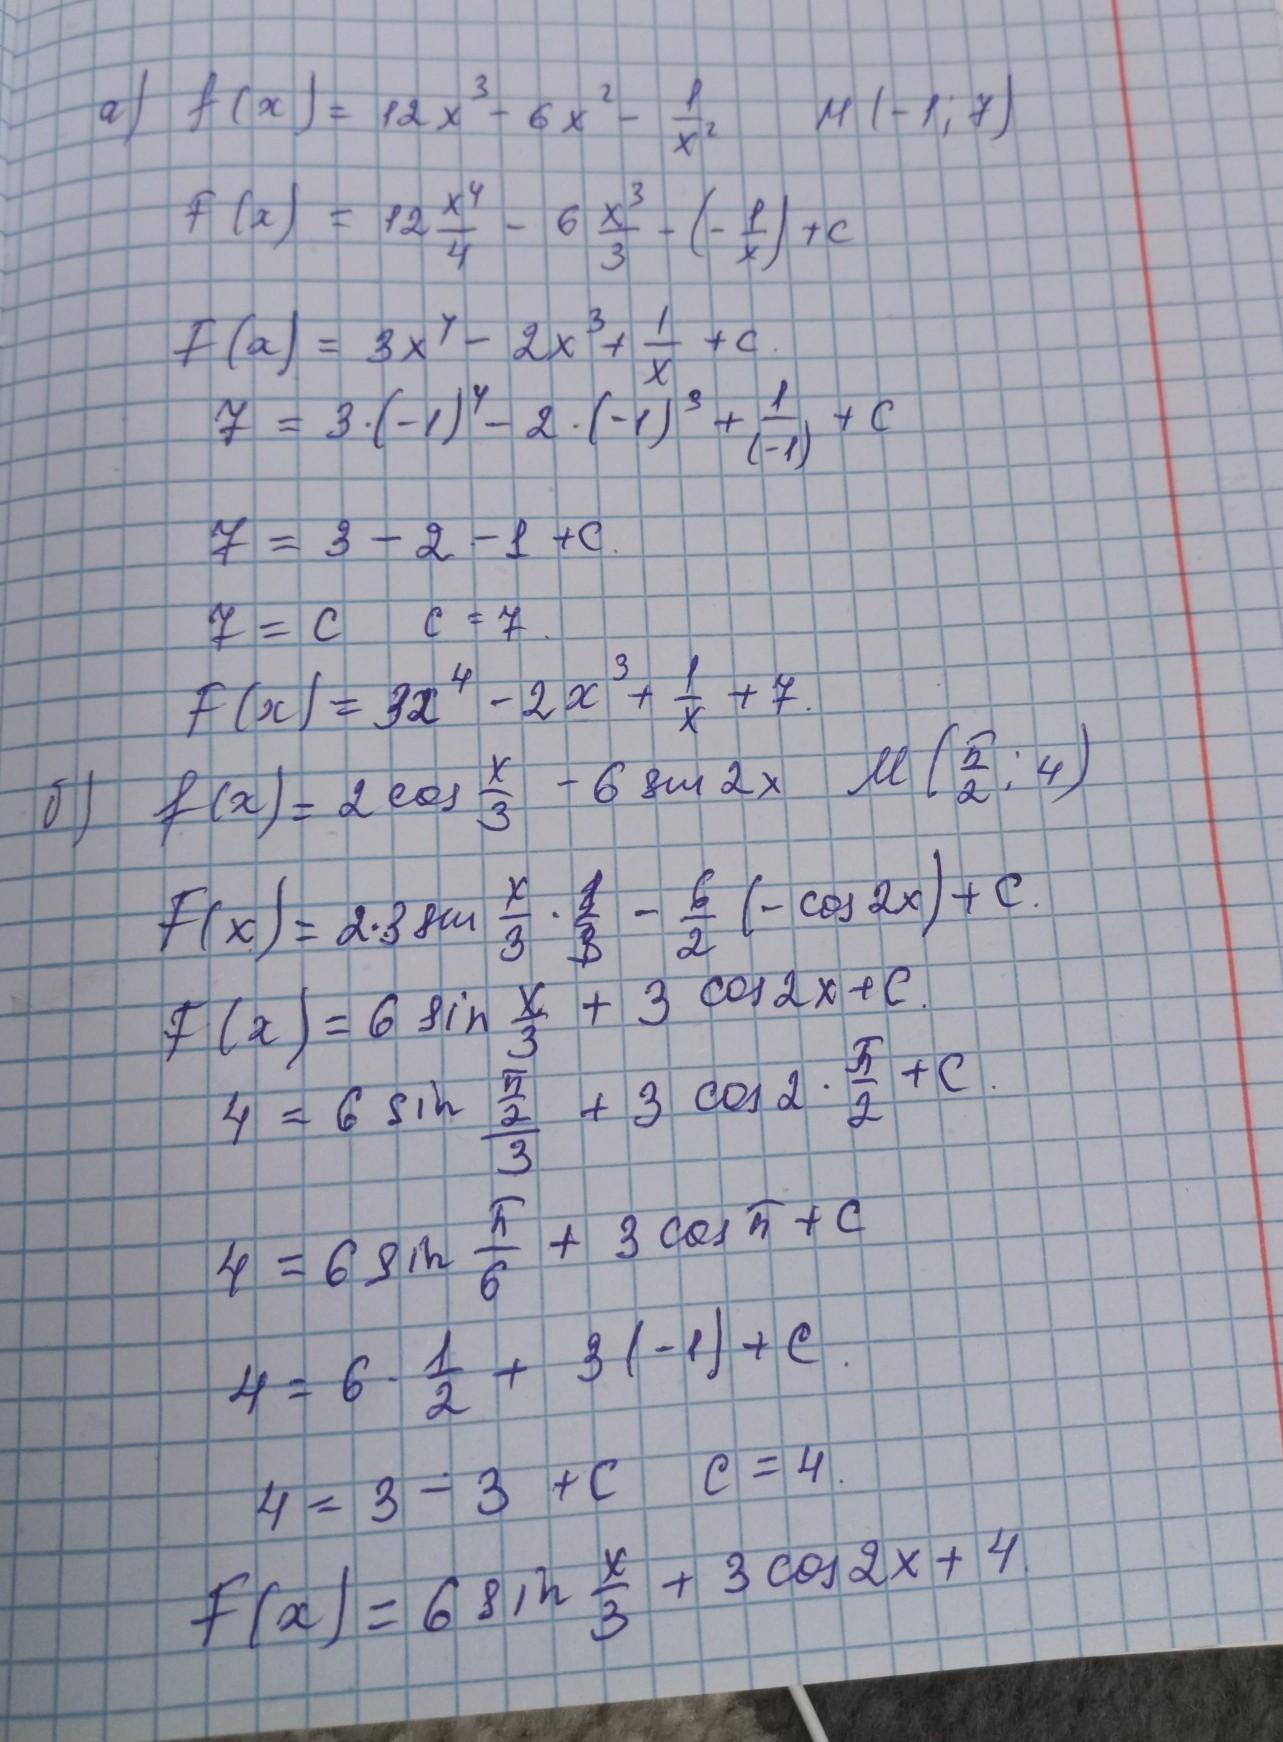 а) f(x) = 12x³ - 6x² - 1/x² M(-1; 7)
F(x) = 12 x⁴/4 - 6 x³/3 - (-1/x) + C
F(x) = 3x⁴ - 2x³ + 1/x + C.
7 = 3·(-1)⁴ - 2·(-1)³ + 1/(-1) + C
7 = 3 - 2 - 1 + C.
7 = C C = 7.
F(x) = 3x⁴ - 2x³ + 1/x + 7.
б) f(x) = 2 cos x/3 - 6 sin 2x M(π/2; 4)
F(x) = 2·3 sin x/3 · - 6/2 (- cos 2x) + C.
F(x) = 6 sin x/3 + 3 cos 2x + C.
4 = 6 sin (π/2)/3 + 3 cos 2·π/2 + C.
4 = 6 sin π/6 + 3 cos π + C
4 = 6 · 1/2 + 3(-1) + C.
4 = 3 - 3 + C C = 4.
F(x) = 6 sin x/3 + 3 cos 2x + 4.